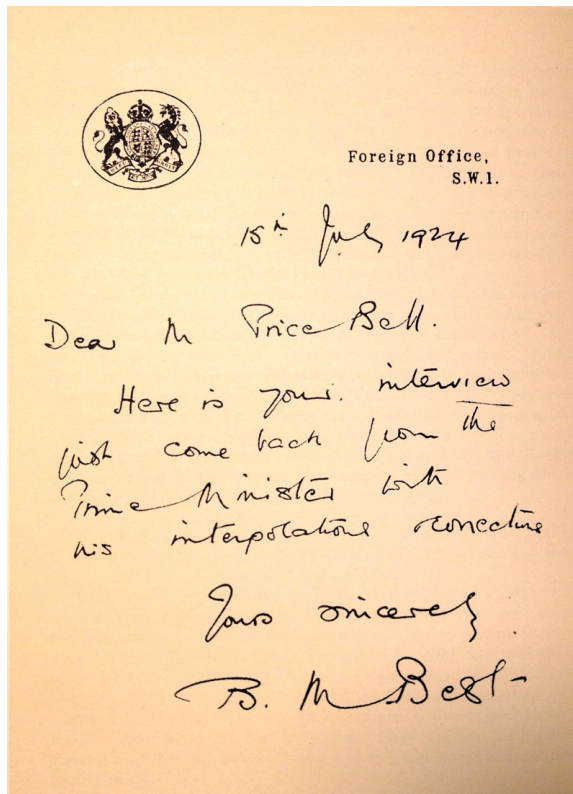 Foreign Office,
S.W.1.
15th July 1924
Dear Mr Price Bell.
Here is your interview
just come back from the
Prime Minister with
his interpolations
Yours sincerely
B. M Best